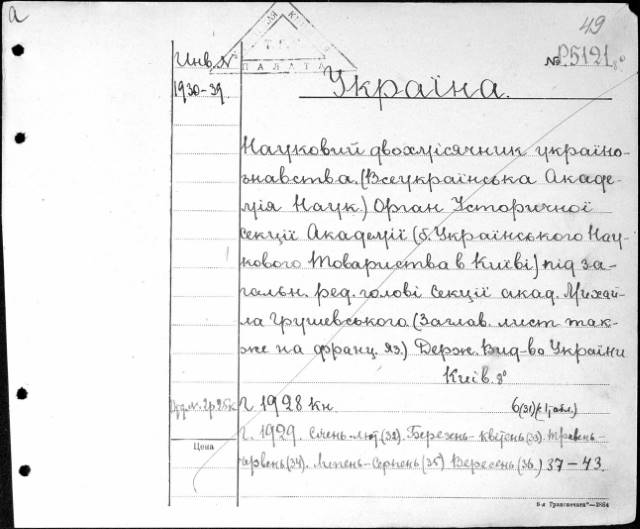 a
49
Инв. №
ПАЛАТА
№ Р5121 8°
1930-39.
Україна.
Науковий двохмісячник україно-
знавства. (Всеукраїнська Акаде-
мія Наук.) Орган Історичної
секції Академії (б. Українського Нау-
кового Товариства в Київі) під за-
гальн. ред. голові секції акад. Михай-
ла Грушевського. (Заглав. лист так-
же на франц. яз.) Держ. Вид-во України
Київ. 8°
2р.25к
г. 1928 кн. 6(31)
г. 1929. Січень-лют(32). Березнь-квітень(33). Травень-
Цена
червень(34). Липень-Серпень(35) Вересень(36.) 37-43.